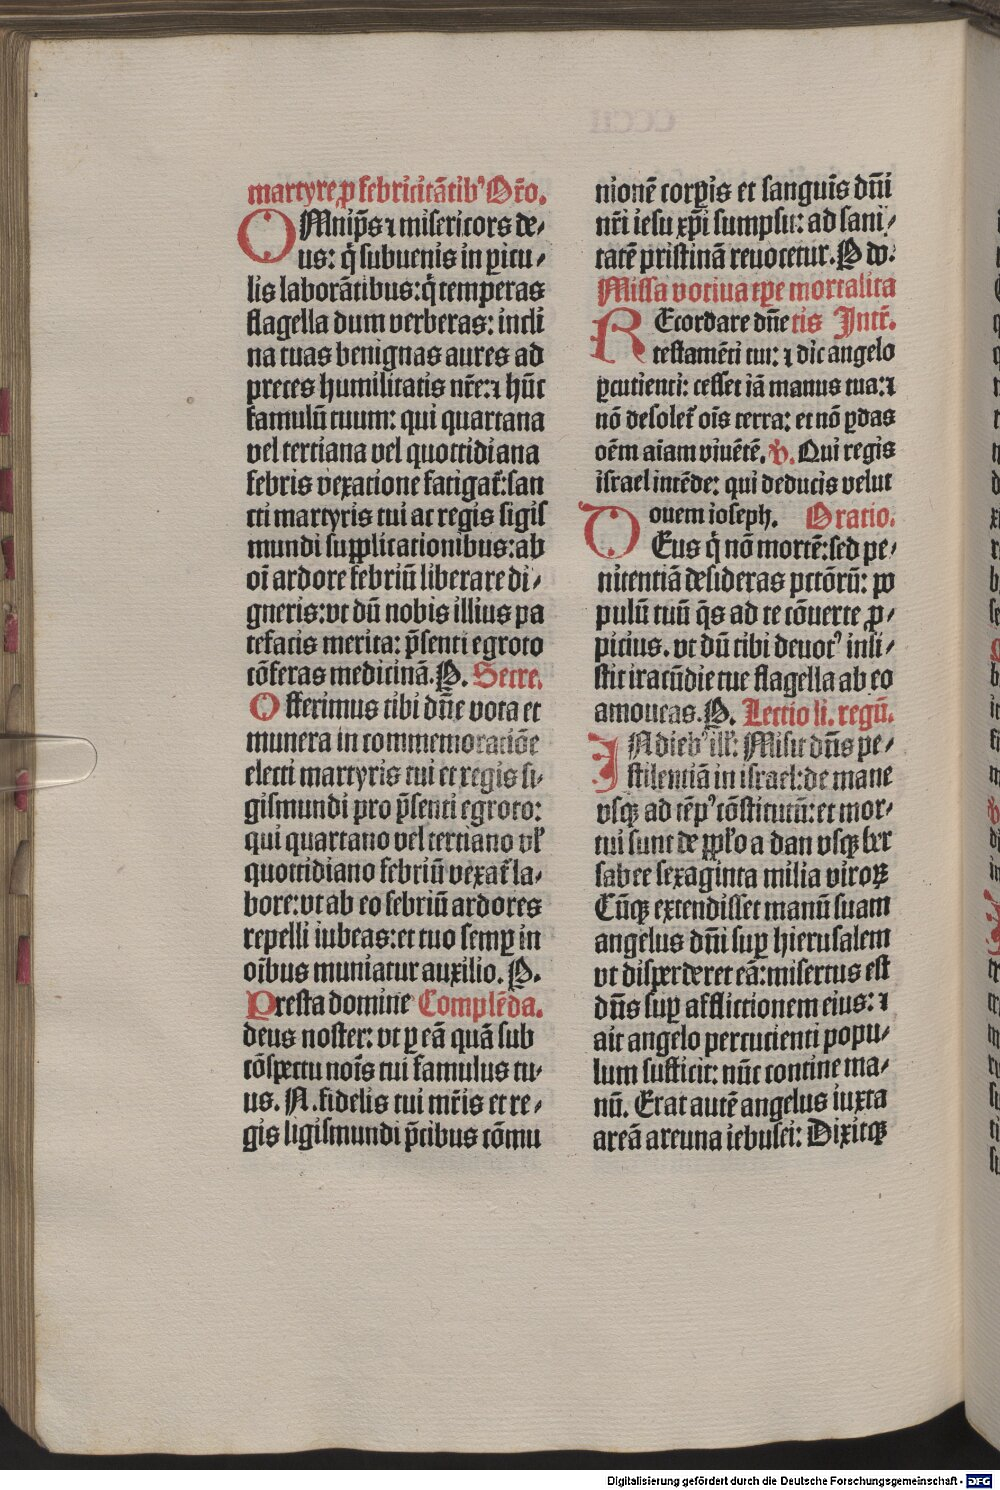 martyre ꝓ febricitātibꝰ Or̄o.
OMnip̄s ⁊ misericors de⸗
us: q̄ subuenis in ꝑicu⸗
lis laborātibus: q̄ temperas
flagella dum verberas: incli
na tuas benignas aures ad
preces humilitatis nr̄e: ⁊ hūc
famulū tuum: qui quartana
vel tertiana vel quottidiana
febris vexatione fatigat᷑: san
cti martyris tui ac regis sigis
mundi supplicationibus: ab
oi̅ ardore febriū liberare di⸗
gneris: vt dū nobis illius pa
tefacis merita: p̄senti egroto
cōferas medicinā. P. Secre.
Offerimus tibi dn̄e vota et
munera in commemoratiōe
electi martyris tui et regis si⸗
gismundi pro p̄senti egroto:
qui quartano vel tertiano vl̓
quottidiano febriū vexat᷑ la⸗
bore: vt ab eo febriū ardores
repelli iubeas: et tuo semꝑ in
oībus muniatur auxilio. P.
Presta domine Complēda.
deus noster: vt ꝑ eā quā sub
cōspectu noīs tui famulus tu⸗
us. N. fidelis tui mr̄is et re⸗
gis sigismundi p̄cibus cōmu
nionē corꝑis et sanguīs dn̄i
nr̄i iesu xp̄i sumpsit: ad sani⸗
tatē pristinā reuocetur. P do.
Missa votiua tꝑe mortalita
REcordare dn̄e tis Intr̄.
testamēti tui: ⁊ dic angelo
ꝑcutienti: cesset iā manus tua: ⁊
nō desolet᷑ oīs terra: et nō ꝑdas
oēm aīam viuētē. V̓. Qui regis
israel intēde: qui deducis velut
ouem ioseph. Oratio.
DEus q̄ nō mortē: sed pe⸗
nitentiā desideras pctōrū: po
pulū tuū q̄s ad te cōuerte ꝓ⸗
picius. vt dū tibi deuotꝰ insi⸗
stit iracūdie tue flagella ab eo
amoueas. P. Lectio li. regū.
IN diebꝰ ill̓: Misit dn̄s pe⸗
stilentiā in israel: de mane
vsqꝫ ad tēpꝰ cōstitutū: et mor⸗
tui sunt de ppl̓o a dan vsqꝫ ber
sabee sexaginta milia viroꝝ
Cūqꝫ extendisset manū suam
angelus dn̄i suꝑ hierusalem
vt disperderet eā: misertus est
dn̄s suꝑ afflictionem eius: ⁊
ait angelo percutienti popu⸗
lum sufficit: nūc contine ma⸗
nū. Erat autē angelus iuxta
areā areuna iebusei: Dixitqꝫ
Digitalisierung gefördert durch die Deutsche Forschungsgemeinschaft - DFG